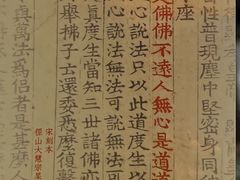 性普現塵中堅密身同
座
是佛佛不遠人無心是道道
說法只以此道度生
心說法無法可說無
真度生當知三世諸佛亦
舉拂子云還委悉麼復擊
宋刻本
徑山大慧宗杲
真萬法為侶者是甚麼人